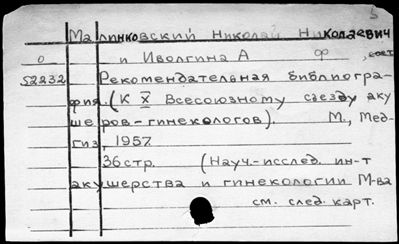 5
Малинковский Николай Николаевич
о и Иволгина А ф , сост
52232 Рекомендательная библиогра-
фия. (К X Всесоюзному съезду аку
шеров-гинекологов). М., Мед-
гиз, 1957
36 стр. (Науч.-исслед. ин-т
акушерства и гинекологии М-ва
см. след. карт.